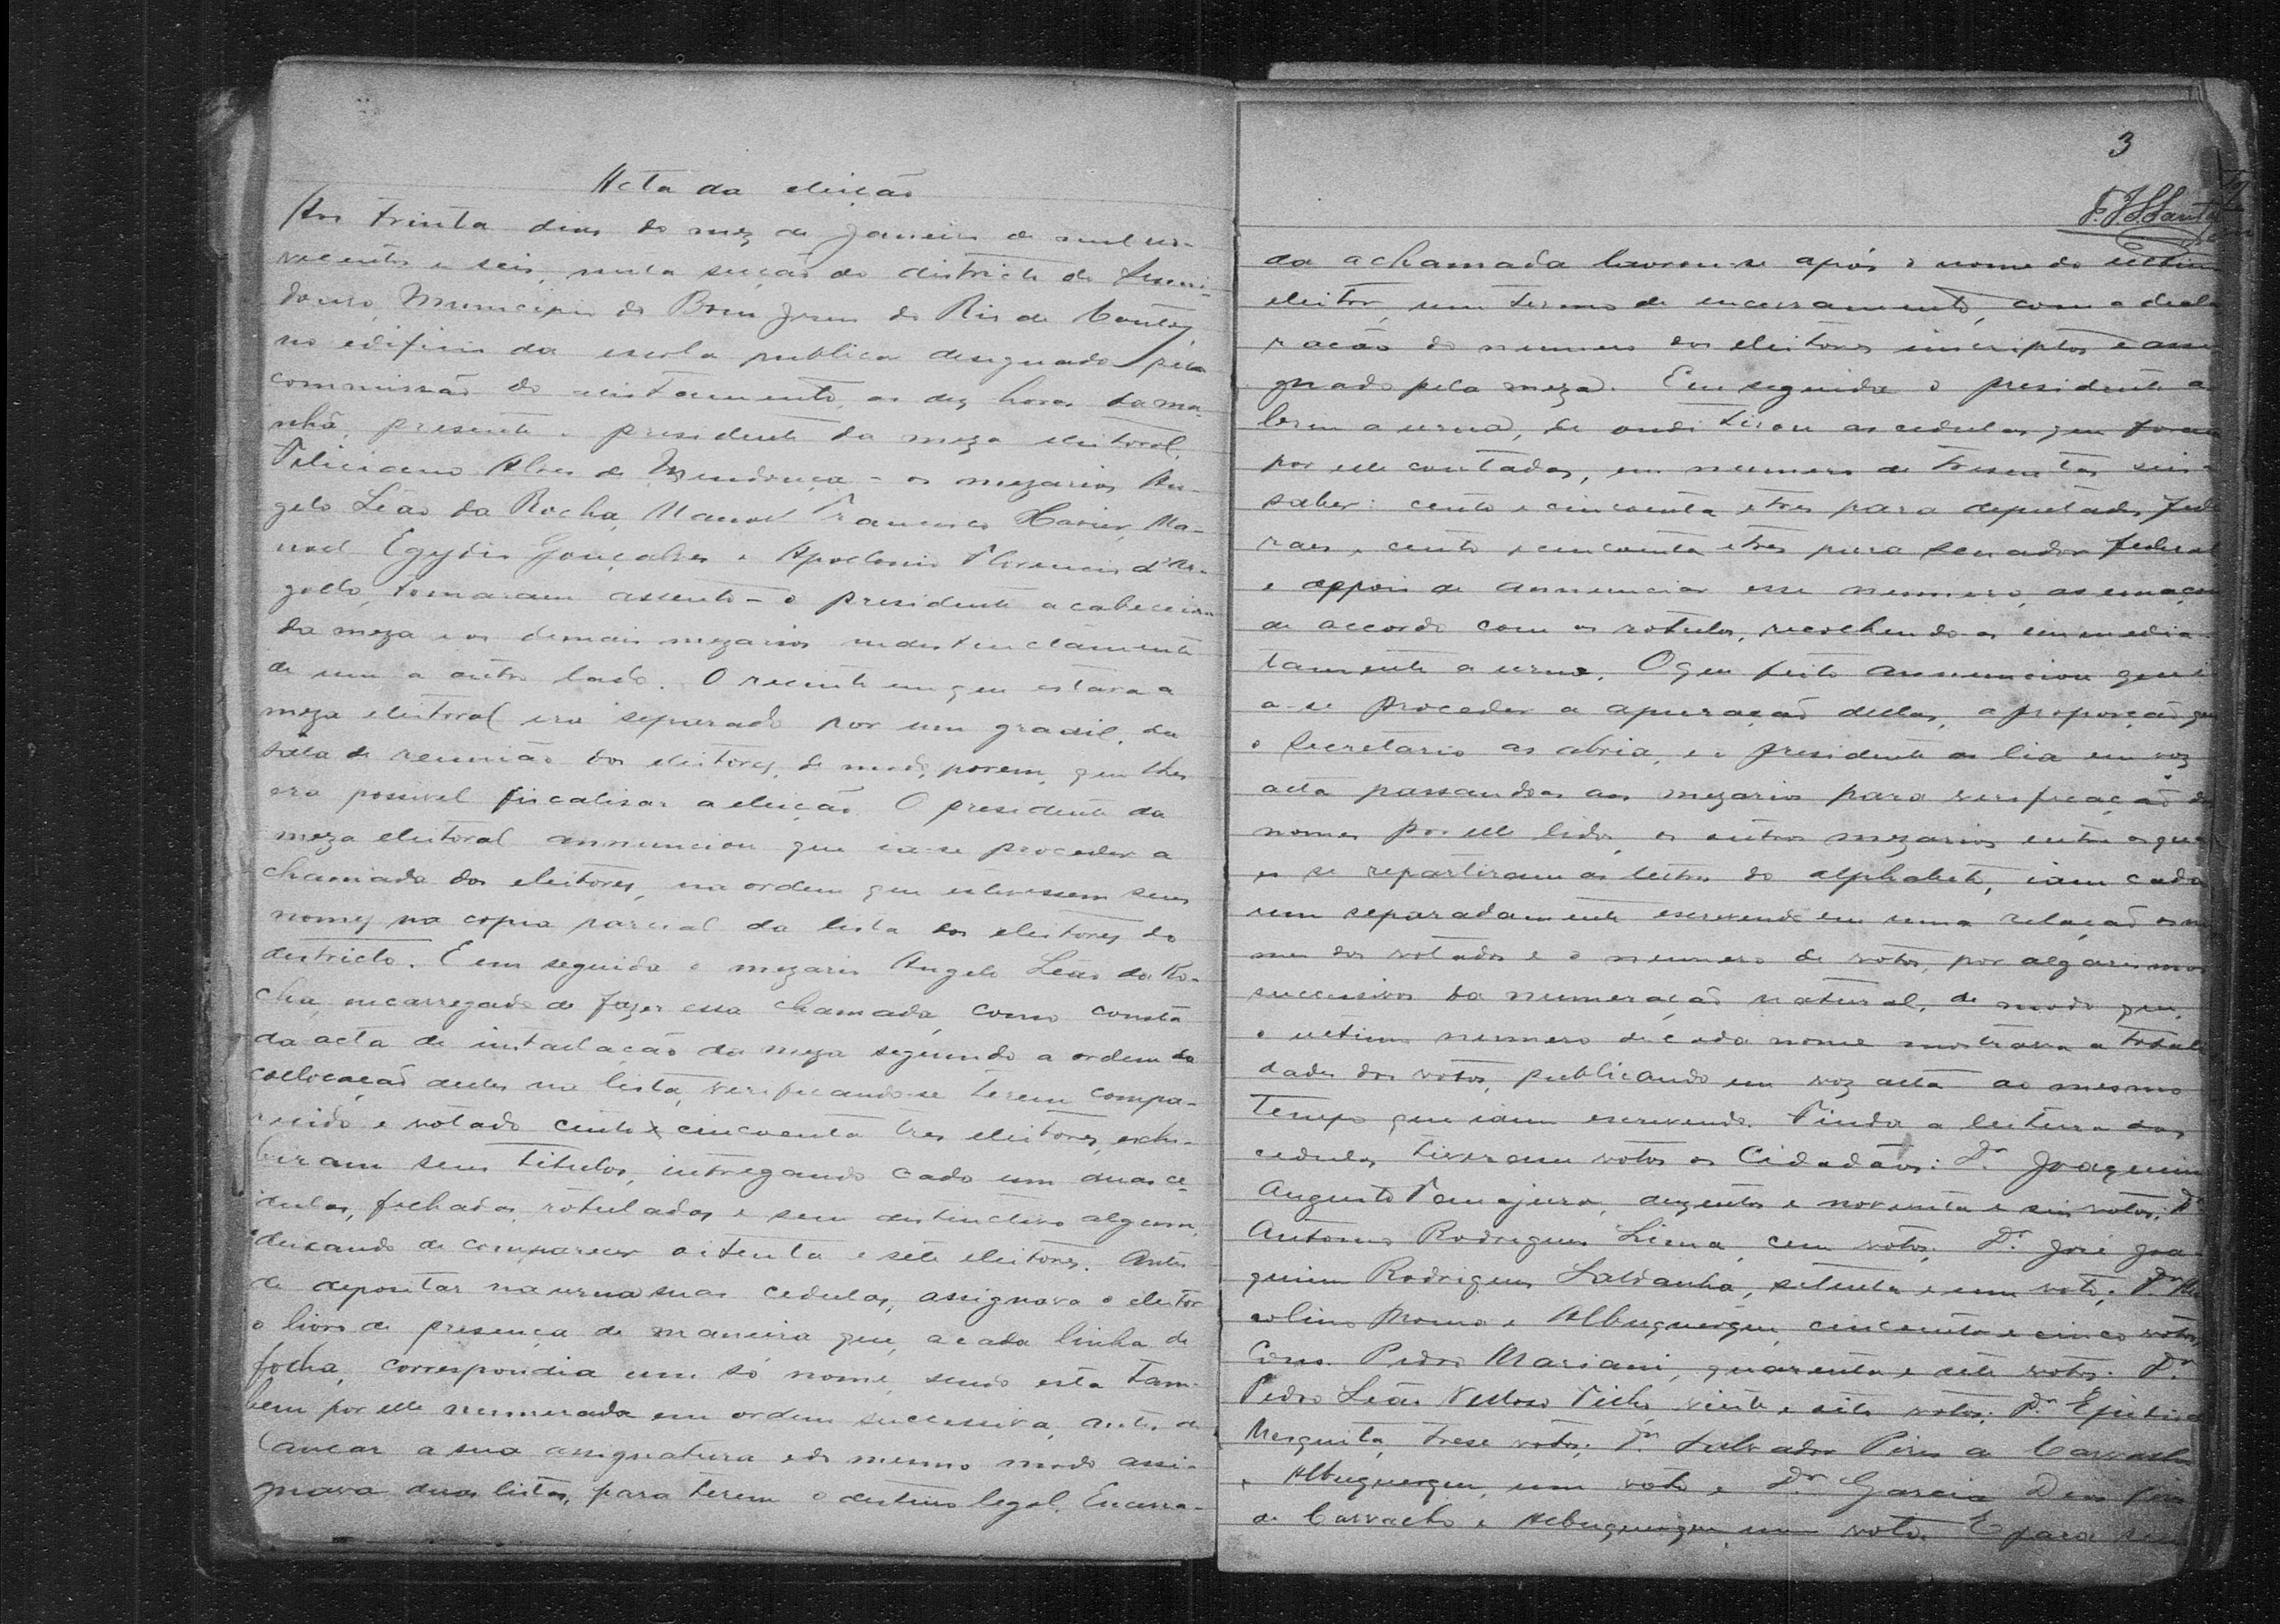 Acta da eleição
Aos trinta dias do mez de Janeiro de mil no-
vecentos e seis, nesta secção do districto do Sumi-
douro, Municipio do Bom Jesus do Rio de Contas,
no edificio da escola publica designado pela
commissão do alistamento, as dez horas da ma-
nhã, presente o presidente da meza eleitoral,
Feliciano Alves de Mendonça - os mezarios An-
gelo Leão da Rocha, Manoel Francisco Xavier, Ma-
noel Egydio Gonçalves e Apollonio Florencio d'Ar-
gollo, tomaram assento - o presidente a cabeceira
da meza e os demais mezarios indestinctamente
de um a outro lado. O recinto em que estava a
meza eleitoral era separado por um gradil, da
sala de reunião dos eleitores, de modo, porem, que lhes
era possivel fiscalisar a eleição. O presidente da
meza eleitoral annunciou que ia-se proceder a
chamada dos eleitores, na ordem que estivessem seus
nomes na copia parcial da lista dos eleitores do
districto. E em seguida o mezario Angelo Leão da Ro-
cha, encarregado de fazer essa chamada, como consta
da acta de installação da meza segundo a ordem da
collocação delles na lista, verificando-se terem compa-
recido e votado cento e cincoenta tres eleitores, exhi-
biram seus titulos, intregando cada um duas ce-
dulas, fechadas, rotuladas e sem destinctivo algum,
deixando de comparecer oitenta e sete eleitores. Antes
de depositar na urna suas cedulas, assignava o eleitor
o livro de presença de maneira que, a cada linha de
folha, correspondia um só nome, sendo esta tam-
bem por elle numerada em ordem successiva, antes de
lançar a sua assignatura e do mesmo modo assi-
gnava duas listas, para terem o destino legal. Encerra-
3
da a chamada lavrou-se após o nome do ultimo
eleitor, um termo de encerramento, com a decla
ração do numero dos eleitores inscriptos e assi
gnado pela meza. Em seguida o presidente a
briu a urna, de onde tirou as cedulas que foram
por elle contadas, em numero de tresentas seis a
saber: cento e cincoenta e tres para deputados fede
raes e cento e cincoenta e tres para senador federal
e deppois de annunciar esse numero, as emaçou
de accordo com os rotulos, recolhendo as immedia-
tamente a urna. O que feito annunciou que i
a-se proceder a apuração dellas, a proporção que
o Secretario as abria, e o presidente as lia em voz
alta passando-as aos mezarios para verificação dos
nomes por elle lidos, os outros mezarios entre os qua
es se repartiram as lettras do alphabeto, iam cada
um separadamente escrevendo em uma relação os no
mes dos votados e o numero de votos, por algarismos
successivos da numeração natural, de modo que,
o ultimo numero de cada nome mostrava a totali
dade dos votos, publicando em voz alta ao mesmo
tempo que iam escrevendo. Finda a leitura das
cedulas tiveram votos os Cidadãos: Dr. Joaquim
Augusto Tanajura, duzentos e noventa e seis votos; Dr
Antonio Rodrigues Lima, cem votos; Dr. José Joa-
quim Rodrigues Saldanha, setenta e um voto; Dr.
colino Moura e Albuquerque, cincoenta e cinco votos,
Cons. Pedro Mariani, quarenta e sete votos. Dr
Pedro Leão Velloso Filho, vinte e sete votos; Dr.
Mesquita, trese votos; Dr Salvador Pires de Carvalho
e Albuquerque, um voto e Dr Garcia Dias Pires
de Carvalho e Albuquerque, um voto. E para sen